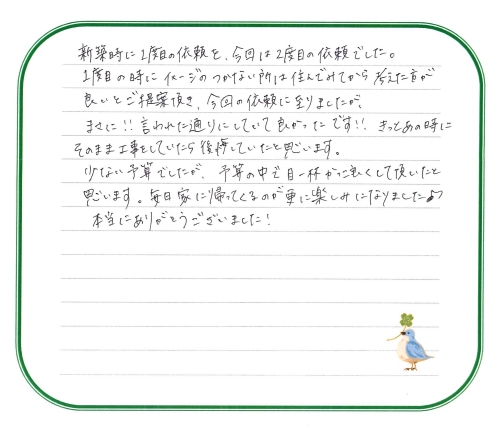 新築時に1度目の依頼を、今回は2度目の依頼でした。
1度目の時にイメージのつかない所は住んでみてから考えた方が
良いとご提案頂き、今回の依頼に至りましたが、
まさに!!言われた通りにしていて良かったです!!きっとあの時に
そのまま工事をしていたら後悔していたと思います。
少ない予算でしたが、予算の中で目一杯かっこ良くして頂いたと
思います。毎日家に帰ってくるのが更に楽しみになりました♪
本当にありがとうございました!